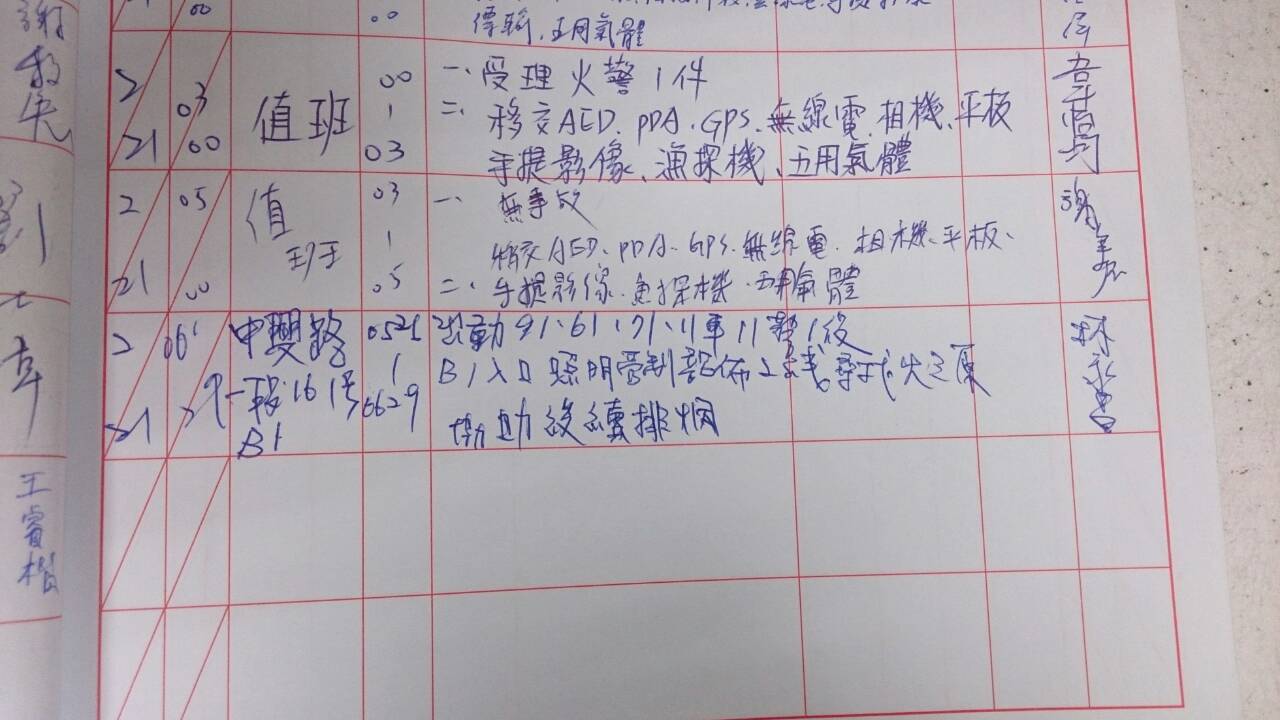 00
00
傳輸、五用氣體
2
21
03
00
值班
00
1
03
一、受理火警1件
二、移交AED、PDA、GPS、無線電、相機、平板
手提影像、漁探機、五用氣體
2
21
05
00
值
班
03
1
05
一、無事故
移交AED、PDA、GPS、無線電、相機、平板、
二、手提影像、魚探機、五用氣體
謝
2
21
06
中興路
一段161號
B1
0521
1
0629
出動91、61、71、11車11警1役
B1入口照明管制部佈2線尋找火之源
協助後續排煙
林
王